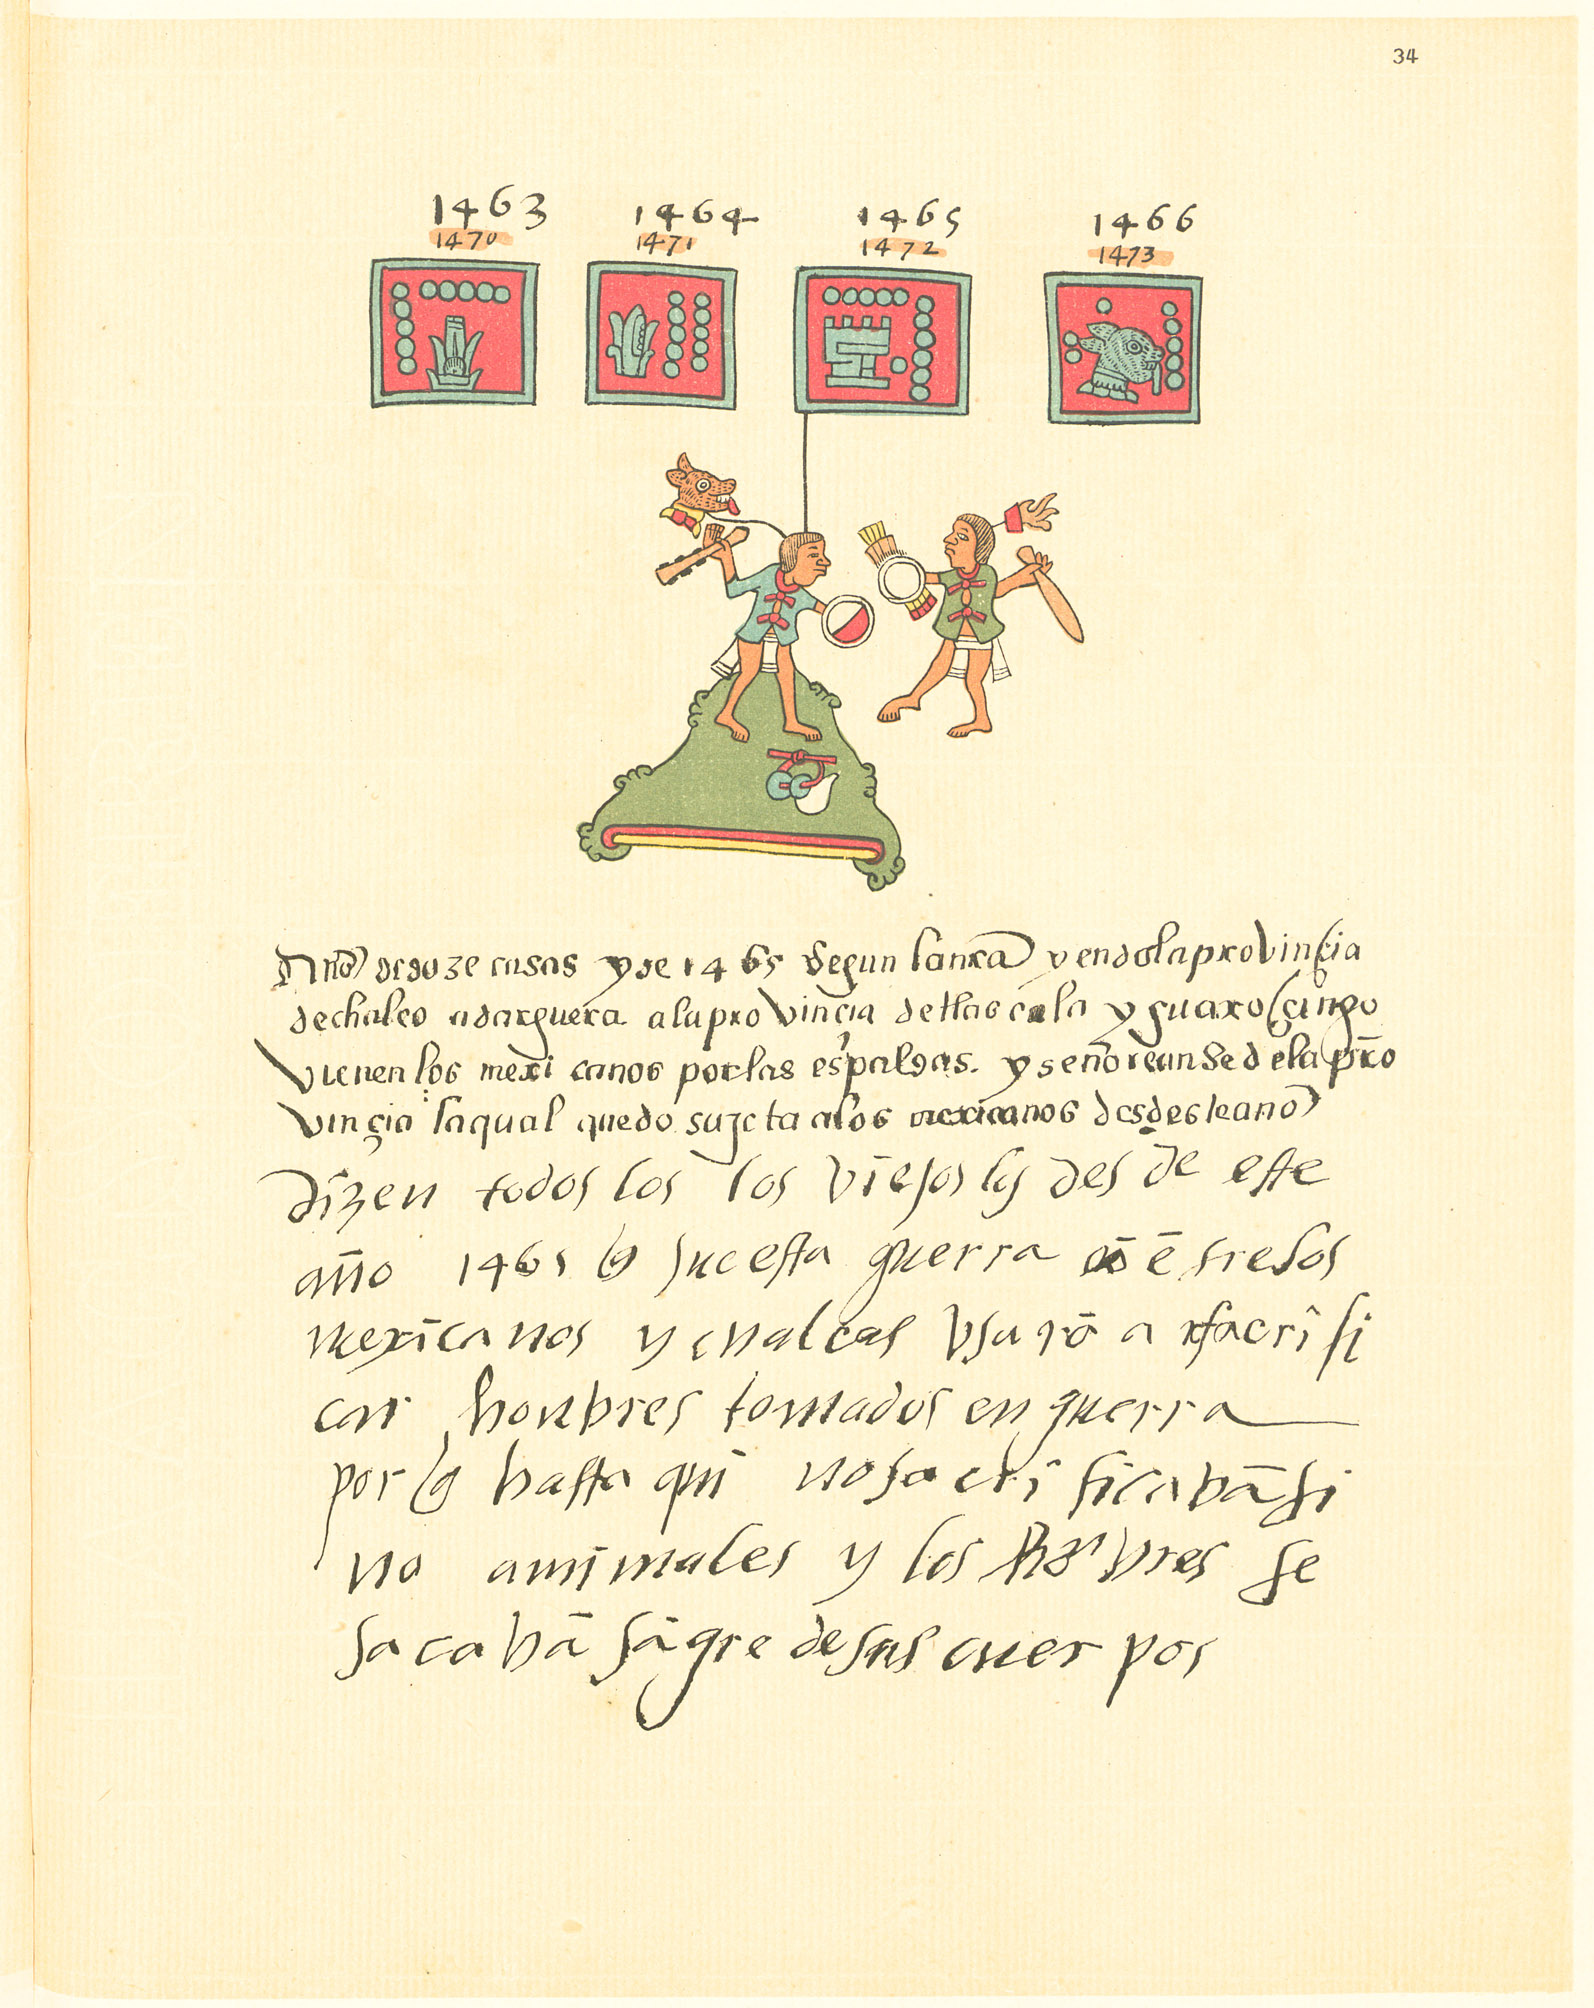 34
1463 1464 1465 1466
1470 1471 1472 1473
Año de doze casas y de 1465 segun la nr̄a yendo la provinçia
de chalco a dar guerra a la provinçia de tlascala y guaxoçingo
vienen los mexicanos por las espaldas. y señoreanse de la pro
vinçia la qual quedo sujeta a los mexicanos desde este año
dizen todos los los viejos q̄ des de este
año 1465 q̄ fue esta guerra ētre los
mexicanos y chalcas usarō a sacrifi
car honbres tomados en guerra
por q̄ hasta qui no sacrificabā si
no animales y los honbres se
sacabā sāgre de sus cuerpos